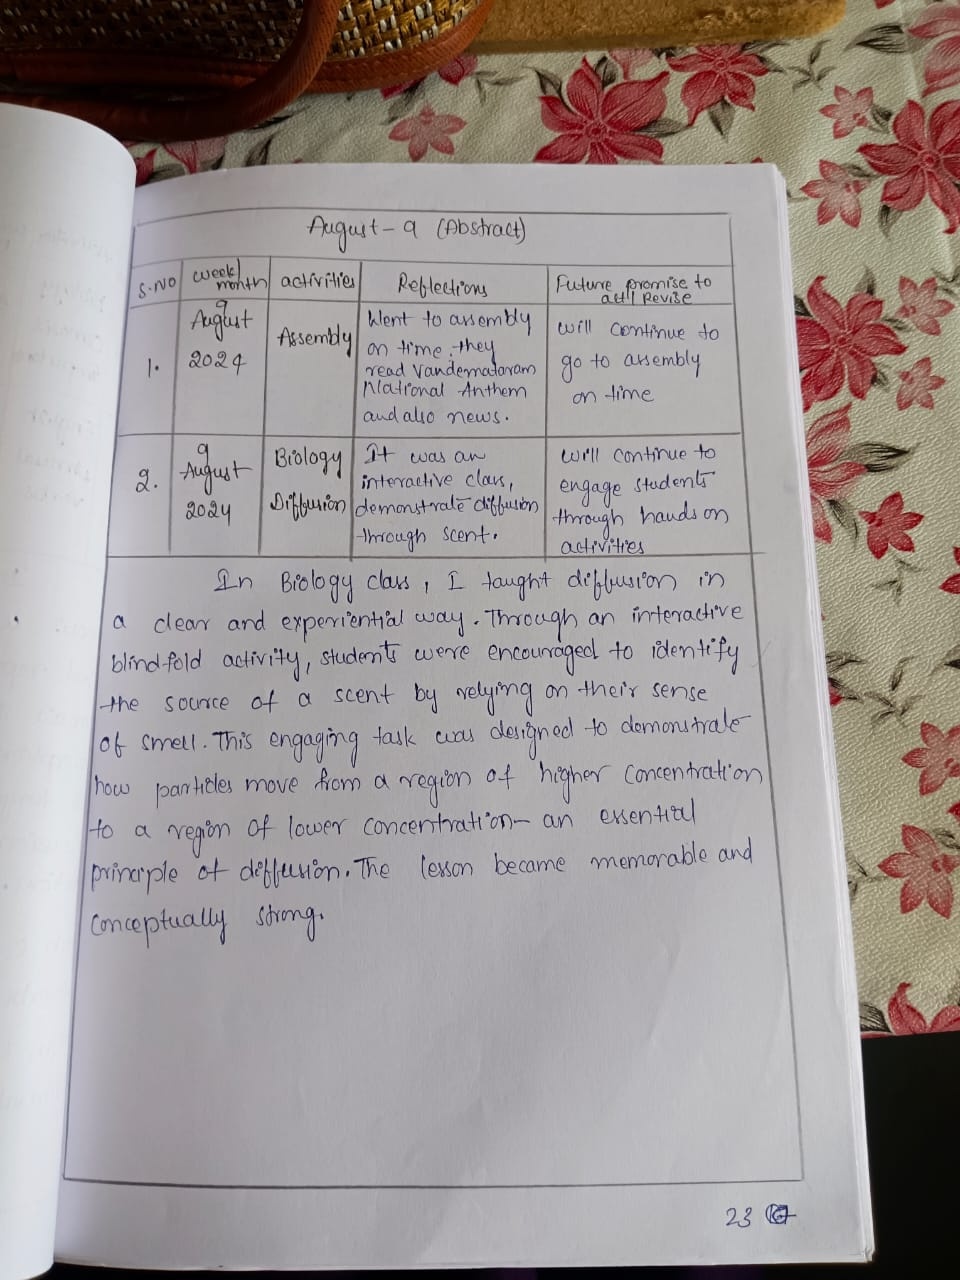 August - 9 (Abstract)
S.NO week/month activities Reflections Future promise to act/ Revise
1. 9 August 2024 Assembly Went to assembly on time. they read Vandemataram National Anthem and also news. will continue to go to assembly on time
2. 9 August 2024 Biology Diffusion It was an interactive class, demonstrate diffusion through scent. will continue to engage students through hands on activities
In Biology class, I taught diffusion in
a clear and experiential way. Through an interactive
blind-fold activity, students were encouraged to identify
the source of a scent by relying on their sense
of smell. This engaging task was designed to demonstrate
how particles move from a region of higher concentration
to a region of lower concentration- an essential
principle of diffusion. The lesson became memorable and
conceptually strong.
23